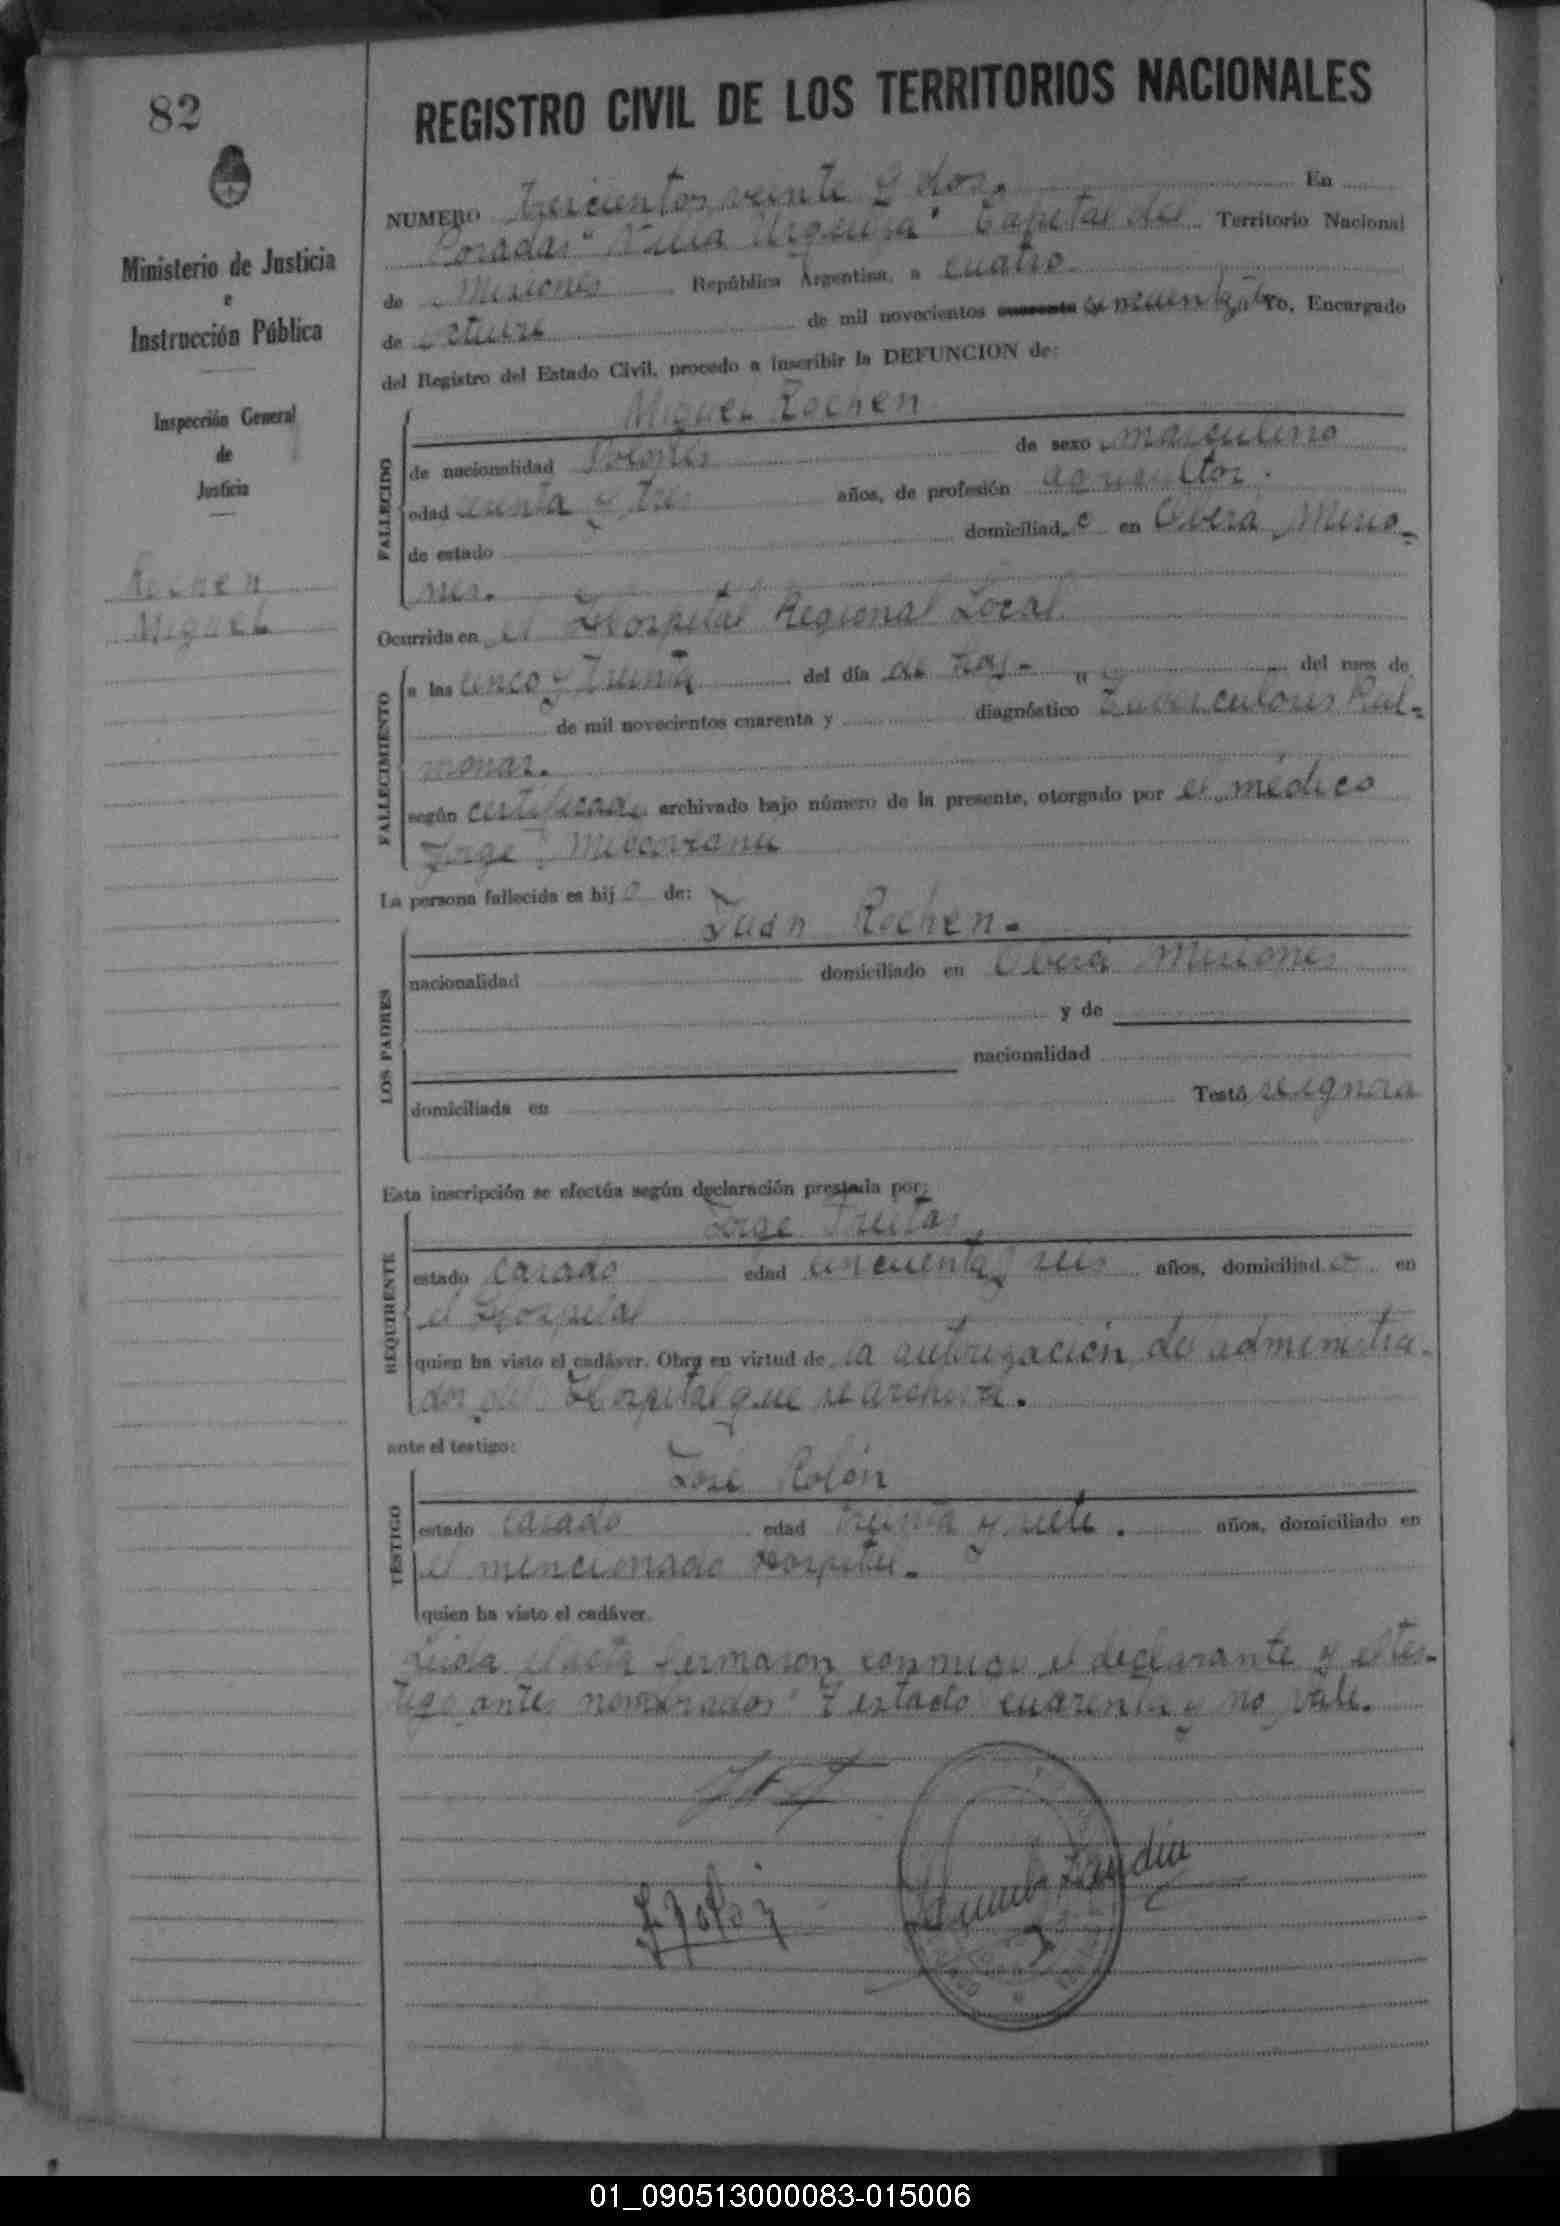 82
REGISTRO CIVIL DE LOS TERRITORIOS NACIONALES
Ministerio de Justicia
e
Instrucción Pública
Inspección General
de
Justicia
Rochen
Miguel
NUMERO Trescientos veinte y dos. En
Posadas Capital del Territorio Nacional
de Misiones República Argentina, a cuatro
de octubre de mil novecientos cuarenta cincuenta, Yo, Encargado
del Registro del Estado Civil, procedo a inscribir la DEFUNCION de:
Miguel Rochen
FALLECIDO
de nacionalidad Polonés de sexo masculino
edad y tres años, de profesión agricultor.
de estado domiciliado en Oberá Misio-
nes.
Ocurrida en el Hospital Regional Local
FALLECIMIENTO
a las cinco y treinta del día de hoy- " del mes de
de mil novecientos cuarenta y diagnóstico Tuberculosis Pul-
monar.
según certificado archivado bajo número de la presente, otorgado por el médico
Jorge
La persona fallecida es hijo de:
Juan Rochen-
LOS PADRES
nacionalidad domiciliado en Oberá Misiones
y de
nacionalidad
domiciliada en Testó
Esta inscripción se efectúa según declaración prestada por:
Jorge Freitas
REQUIRENTE
estado casado edad cincuenta y seis años, domiciliado en
el Hospital
quien ha visto el cadáver. Obra en virtud de la autorización del administra-
dor del Hospital que se archiva.
ante el testigo:
José Rolón
TESTIGO
estado casado edad treinta y siete. años, domiciliado en
el mencionado Hospital.
quien ha visto el cadáver.
Leida el acta firmaron conmigo el declarante y el tes-
tigo antes nombrados Testado cuarenta y no vale.
J. Rolón
01_090513000083-015006